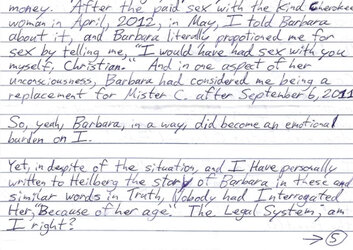 money. After the paid sex with the kind Cherokee
woman in April, 2012, in May, I told Barbara
about it, and Barbara literally propotioned me for
sex by telling me, "I would have had sex with you
myself, Christian." And in one aspect of her
unconsciousness, Barbara had considered me being a
replacement for Mister C. after September 6, 2011
So, yeah, Barbara, in a way, did become an emotional
burden on I.
Yet, in despite of the situation, and I Have personally
written to Heilberg the story of Barbara in these and
similar words in Truth, Nobody had Interrogated
Her, "Because of her age." The Legal System; am
I right?
→ 5